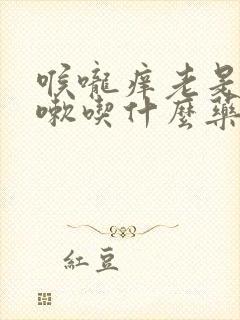 喉嚨痒老是
嗽喫什麼藥
紅豆